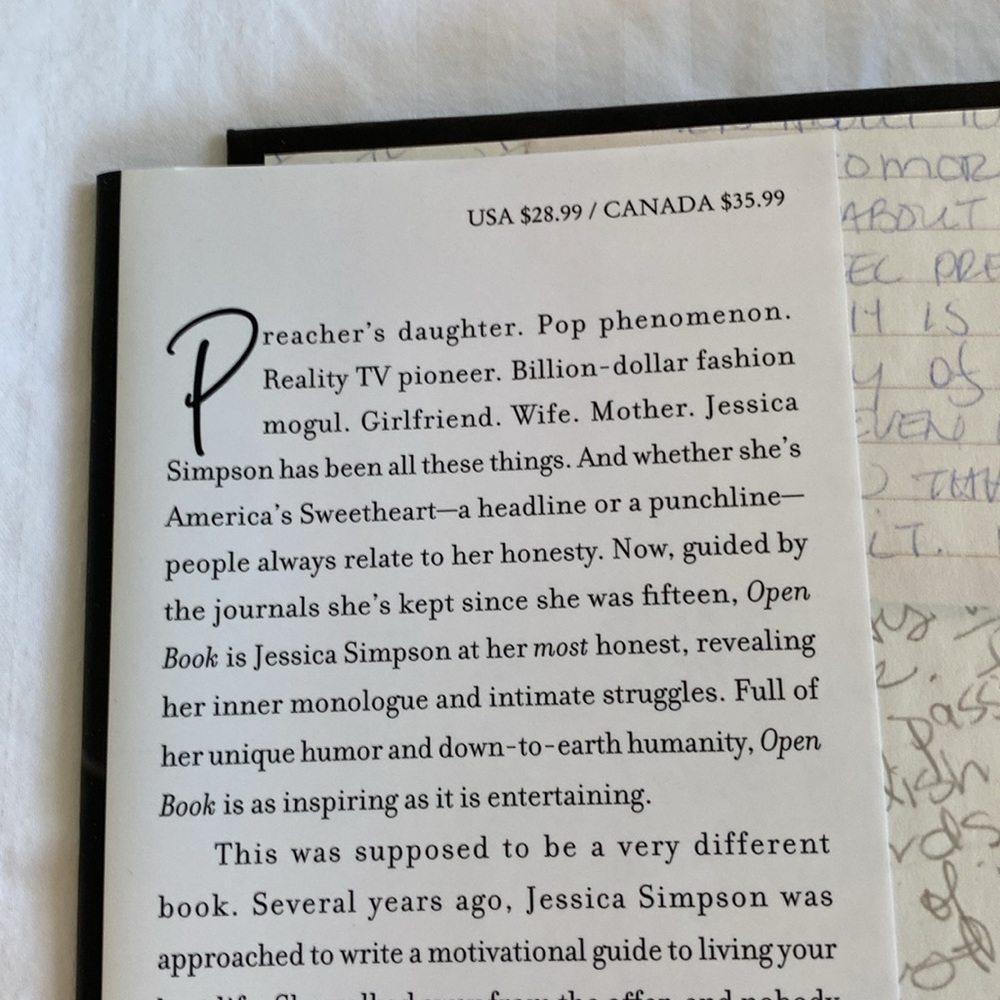 USA $28.99 / CANADA $35.99
Preacher's daughter. Pop phenomenon.
Reality TV pioneer. Billion-dollar fashion
mogul. Girlfriend. Wife. Mother. Jessica
Simpson has been all these things. And whether she's
America's Sweetheart—a headline or a punchline—
people always relate to her honesty. Now, guided by
the journals she's kept since she was fifteen, Open
Book is Jessica Simpson at her most honest, revealing
her inner monologue and intimate struggles. Full of
her unique humor and down-to-earth humanity, Open
Book is as inspiring as it is entertaining.
This was supposed to be a very different
book. Several years ago, Jessica Simpson was
approached to write a motivational guide to living your
ABOUT
IS
of
EVEN
IT.
of